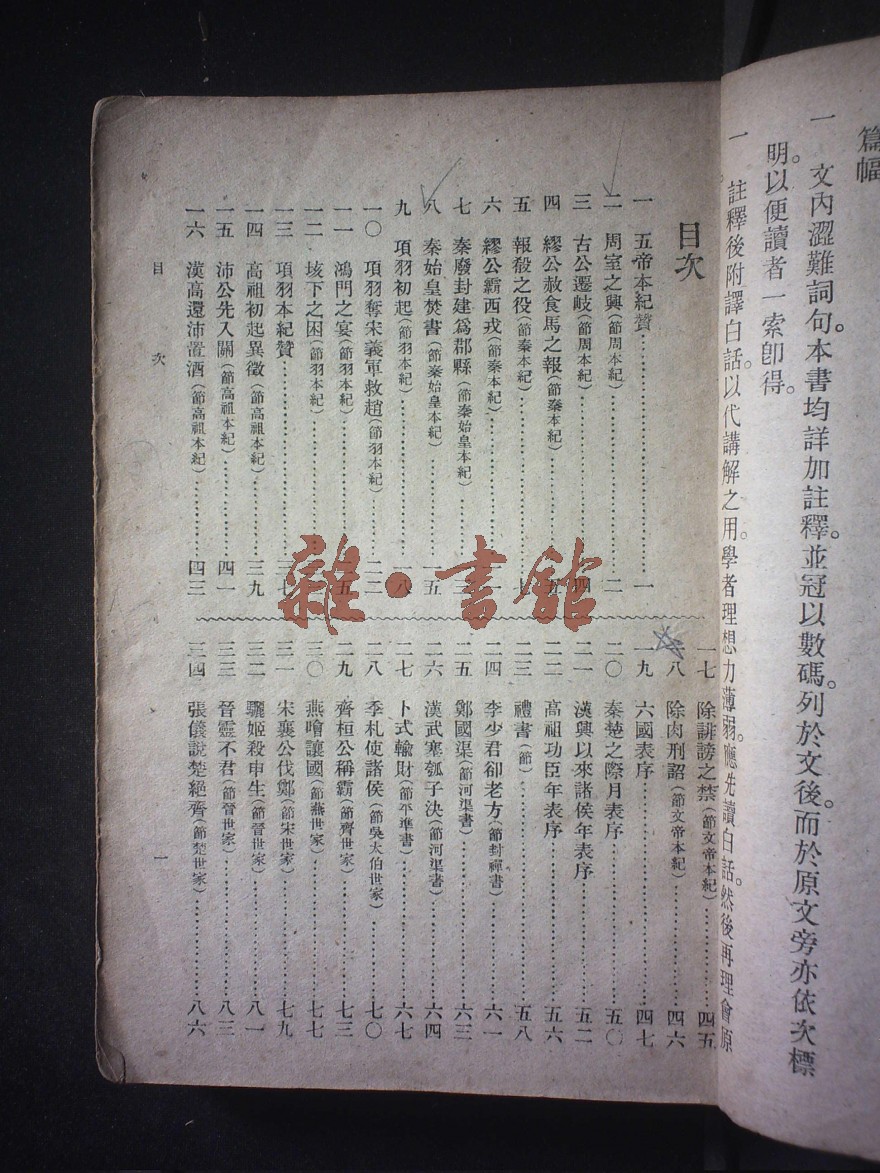 篇幅
一 文內澀難詞句。本書均詳加註釋。並冠以數碼。列於文後。而於原文旁亦依次標
明。以便讀者一索卽得。
一 註釋後附譯白話。以代講解之用。學者理想力薄弱。應先讀白話。然後再理會原
目次
一 五帝本紀贊 一
二 周室之興(節周本紀) 二
三 古公遷岐(節周本紀) 四
四 繆公赦食馬之報(節秦本紀)
五 報殽之役(節秦本紀) 七
六 繆公霸西戎(節秦本紀)
七 秦廢封建爲郡縣(節秦始皇本紀)
八 秦始皇焚書(節秦始皇本紀) 一五
九 項羽初起(節羽本紀) 一八
一〇 項羽奪宋義軍救趙(節羽本紀) 二二
一一 鴻門之宴(節羽本紀) 五
一二 垓下之困(節羽本紀)
一三 項羽本紀贊 三七
一四 高祖初起異徵(節高祖本紀) 三九
一五 沛公先入關(節高祖本紀) 四一
一六 漢高還沛置酒(節高祖本紀) 四三
一七 除誹謗之禁(節文帝本紀) 四五
一八 除肉刑詔(節文帝本紀) 四六
一九 六國表序 四七
二〇 秦楚之際月表序 五〇
二一 漢興以來諸侯年表序 五二
二二 高祖功臣年表序 五六
二三 禮書(節) 五八
二四 李少君卻老方(節封禪書) 六一
二五 鄭國渠(節河渠書) 六三
二六 漢武塞瓠子決(節河渠書) 六四
二七 卜式輸財(節平準書) 六七
二八 季札使諸侯(節吳太伯世家) 七〇
二九 齊桓公稱霸(節齊世家) 七三
三〇 燕噲讓國(節燕世家) 七七
三一 宋襄公伐鄭(節宋世家) 七九
三二 驪姬殺申生(節晉世家) 八一
三三 晉靈不君(節晉世家) 八三
三四 張儀說楚絕齊(節楚世家) 八六
目次 一
雜·書館